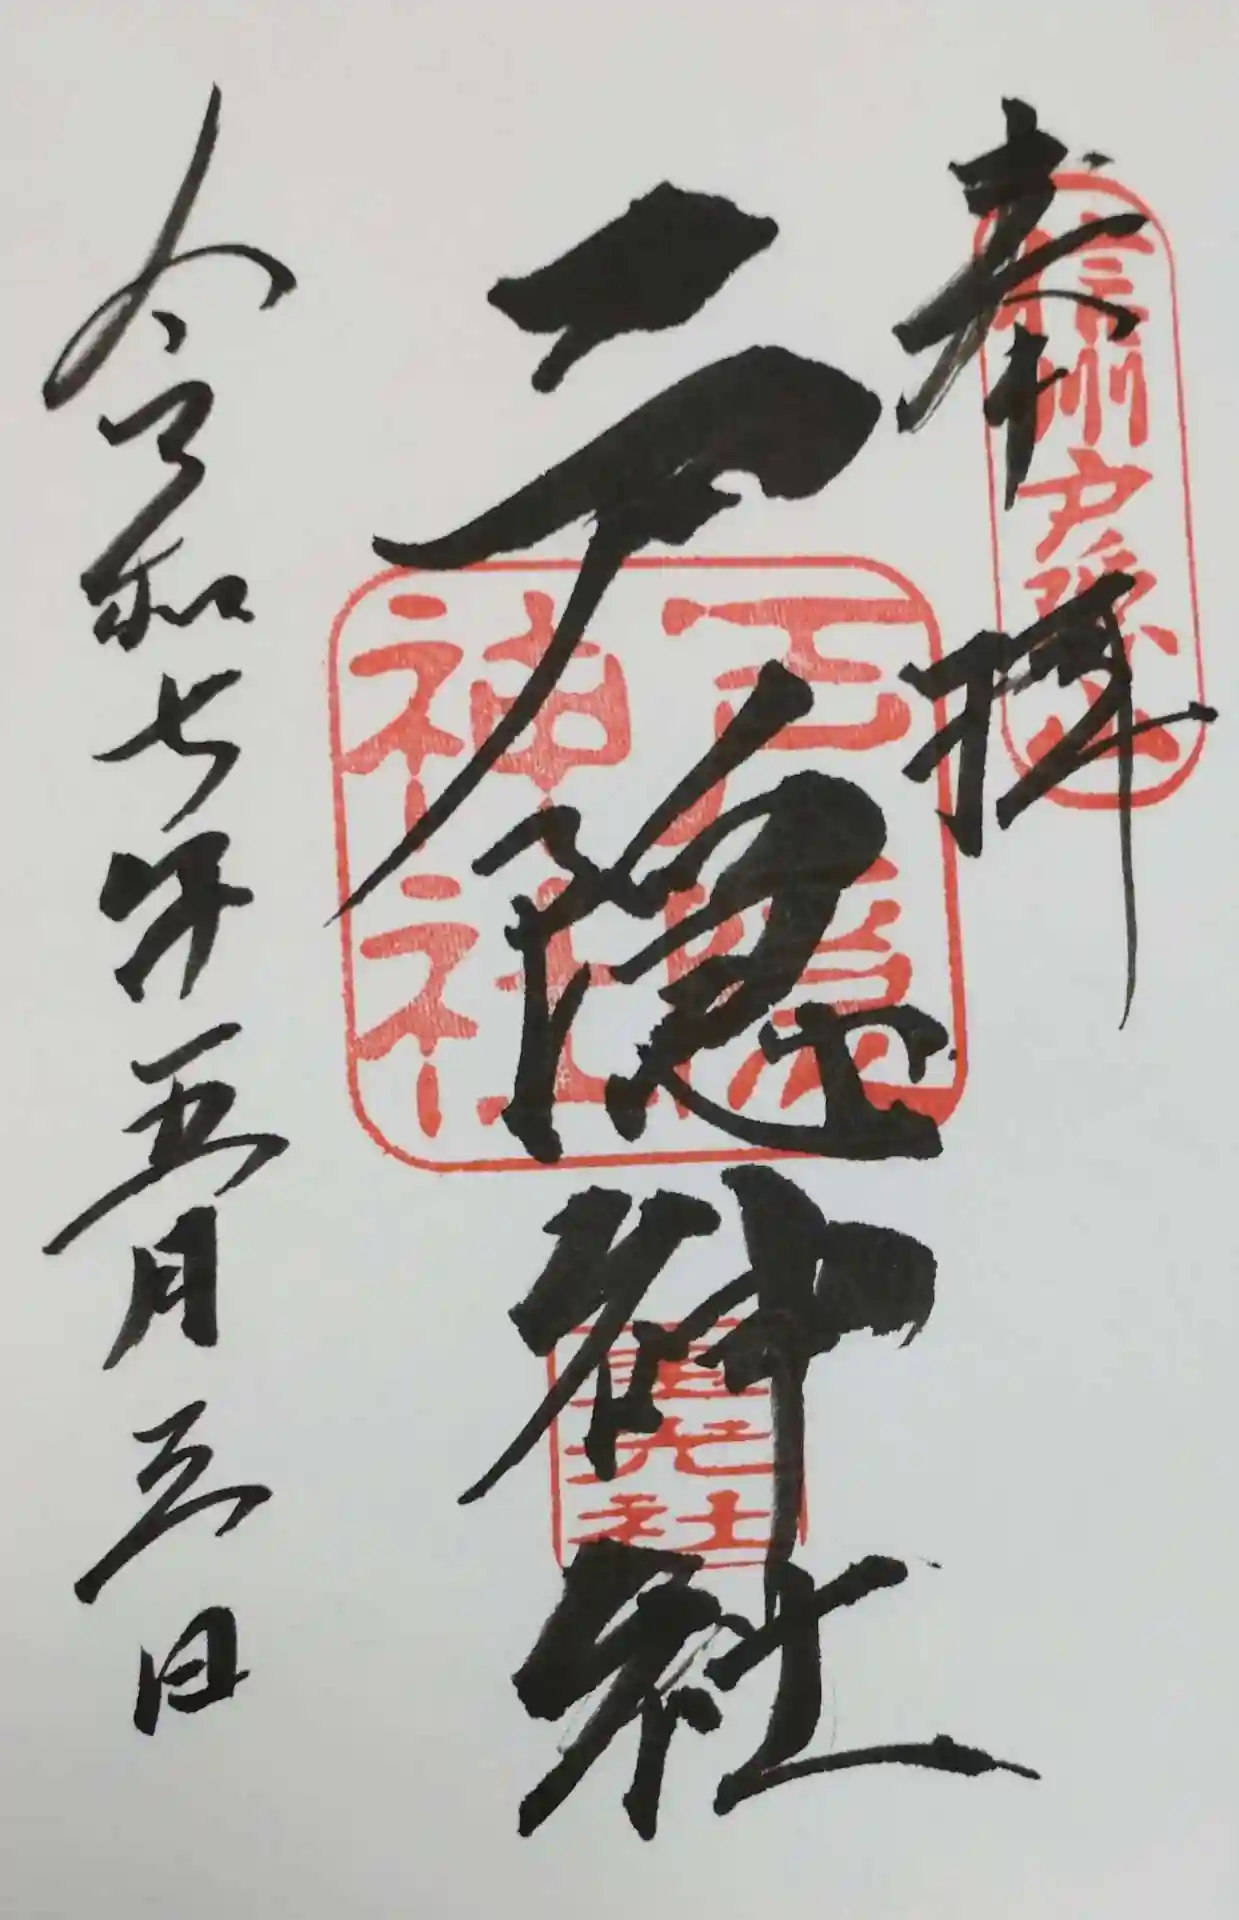 奉拝
信州戸隠山
戸隠神社
戸隠神社
宝光社
令和七年五月三日